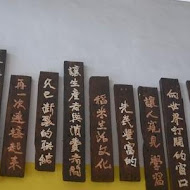 向世界打開的窗口
讓人有見學習
先民豐富的
稻米生活文化
讓生產者與消費者間
久已斷裂的聯結
再一次連接起來